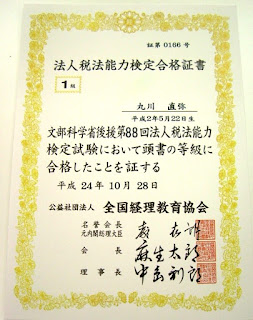 証第0166号
法人税法能力検定合格証書
1級
丸川 直弥
平成2年5月22日生
文部科学省後援第88回法人税法能力
検定試験において頭書の等級に
合格したことを証する
平成24年10月28日
公益社団法人 全国経理教育協会
名誉会長
元内閣総理大臣
会長 麻生太郎
理事長 中島利郎